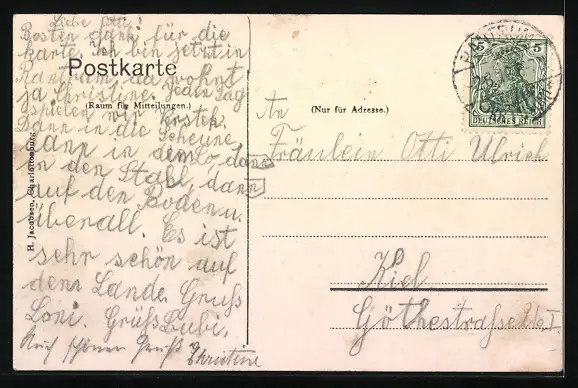 Liebe Otti!
Besten Dank für die
Karte. Ich bin jetzt in
Rantrum, da wohnt
Postkarte
ja Christine. Jeden Tag
(Raum für Mitteilungen.)
spielen wir Kriegen.
Dann in die Scheune,
dann in den Lo, dann
in den Stall, dann
auf den Boden u.
überall. Es ist
sehr schön auf
dem Lande. Gruß
Loni. Grüß Bubi.
Auch schönen Gruß Christine
H. Jacobsen, Charlottenburg
(Nur für Adresse.)
5 5
DEUTSCHES REICH
An
Fräulein Otti Ulrich
Kiel
Göthestraße 26 I